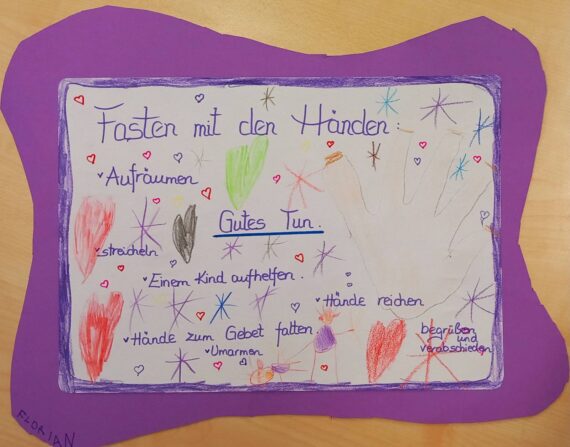 Fasten mit den Händen:
Aufräumen
Gutes Tun.
streicheln
Einem Kind aufhelfen.
Hände reichen
Hände zum Gebet falten.
begrüßen
und
verabschieden
Umarmen
FLORIAN